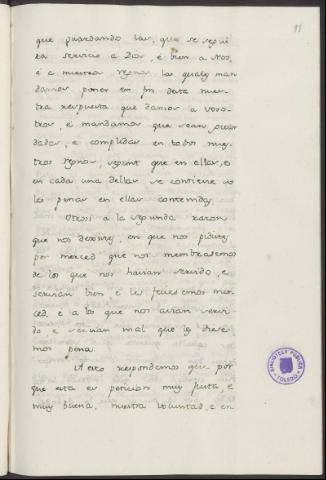 91
que guardando las, que se segui
ra servicio a Dios, e bien a Nos,
e a nuestros regnos las quales man
damos poner en fin desta nues-
tra respuesta que damos a voso-
tros, e mandamos que sean guar
dadas, e complidas en todos nues
tros regnos, segunt que en ellas, o
en cada una dellas se contiene so
las penas en ellas contenidas.
Otrosi a la segunda razon
que nos dexistes, en que nos pidistes
por merced que nos membrasemos
de los que nos havian servido, e
servian bien e les ficiesemos mer
ced, e a los que nos avian servi
do e servian mal que les diese-
mos pena.
A esto respondemos que por
que esta es peticion muy justa e
muy buena, nuestra voluntad, e en
BIBLIOTECA PUBLICA
TOLEDO